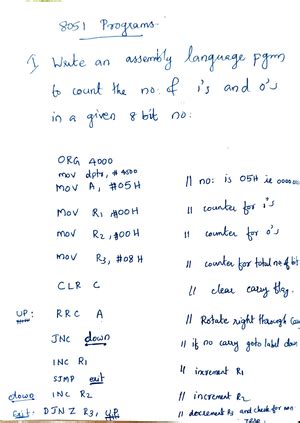 8051 Programs.
I Write an assembly language pgm
to count the no. of 1's and 0's
in a given 8 bit no:
ORG 4000
mov dptr, #4500
MOV A, #05H // no: is 05H ie
MOV R1 #00H // counter for 1's
MOV R2, #00H // counter for 0's
MOV R3, #08H // counter for total no of bit
CLR C // clear carry flag.
UP: RRC A // Rotate right through
JNC down // if no carry goto label down
INC R1 // increment R1
SJMP exit
down INC R2 // increment R2
exit. DJNZ R3, UP // decrement R3 and check for non